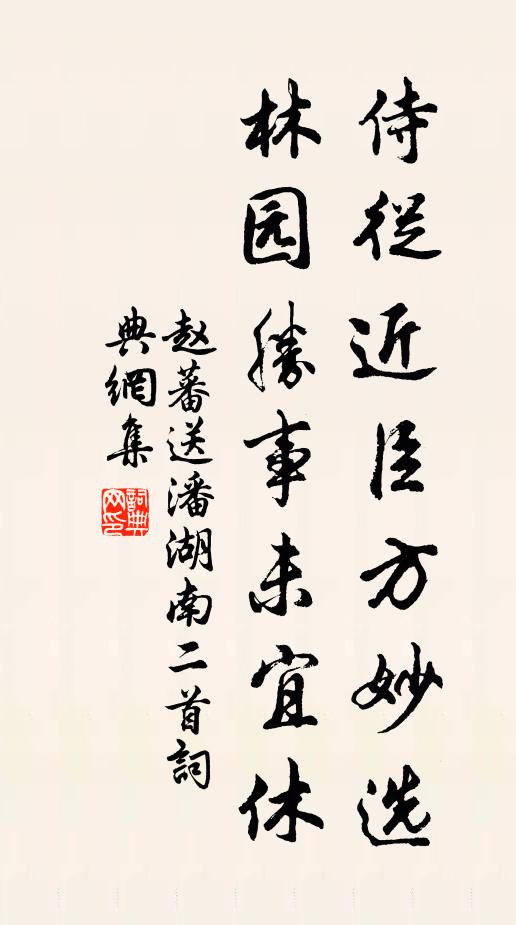 侍従近臣方妙选
林园勝事未宜休
赵蕃送潘湖南二首詞
典網集
詞典
网印